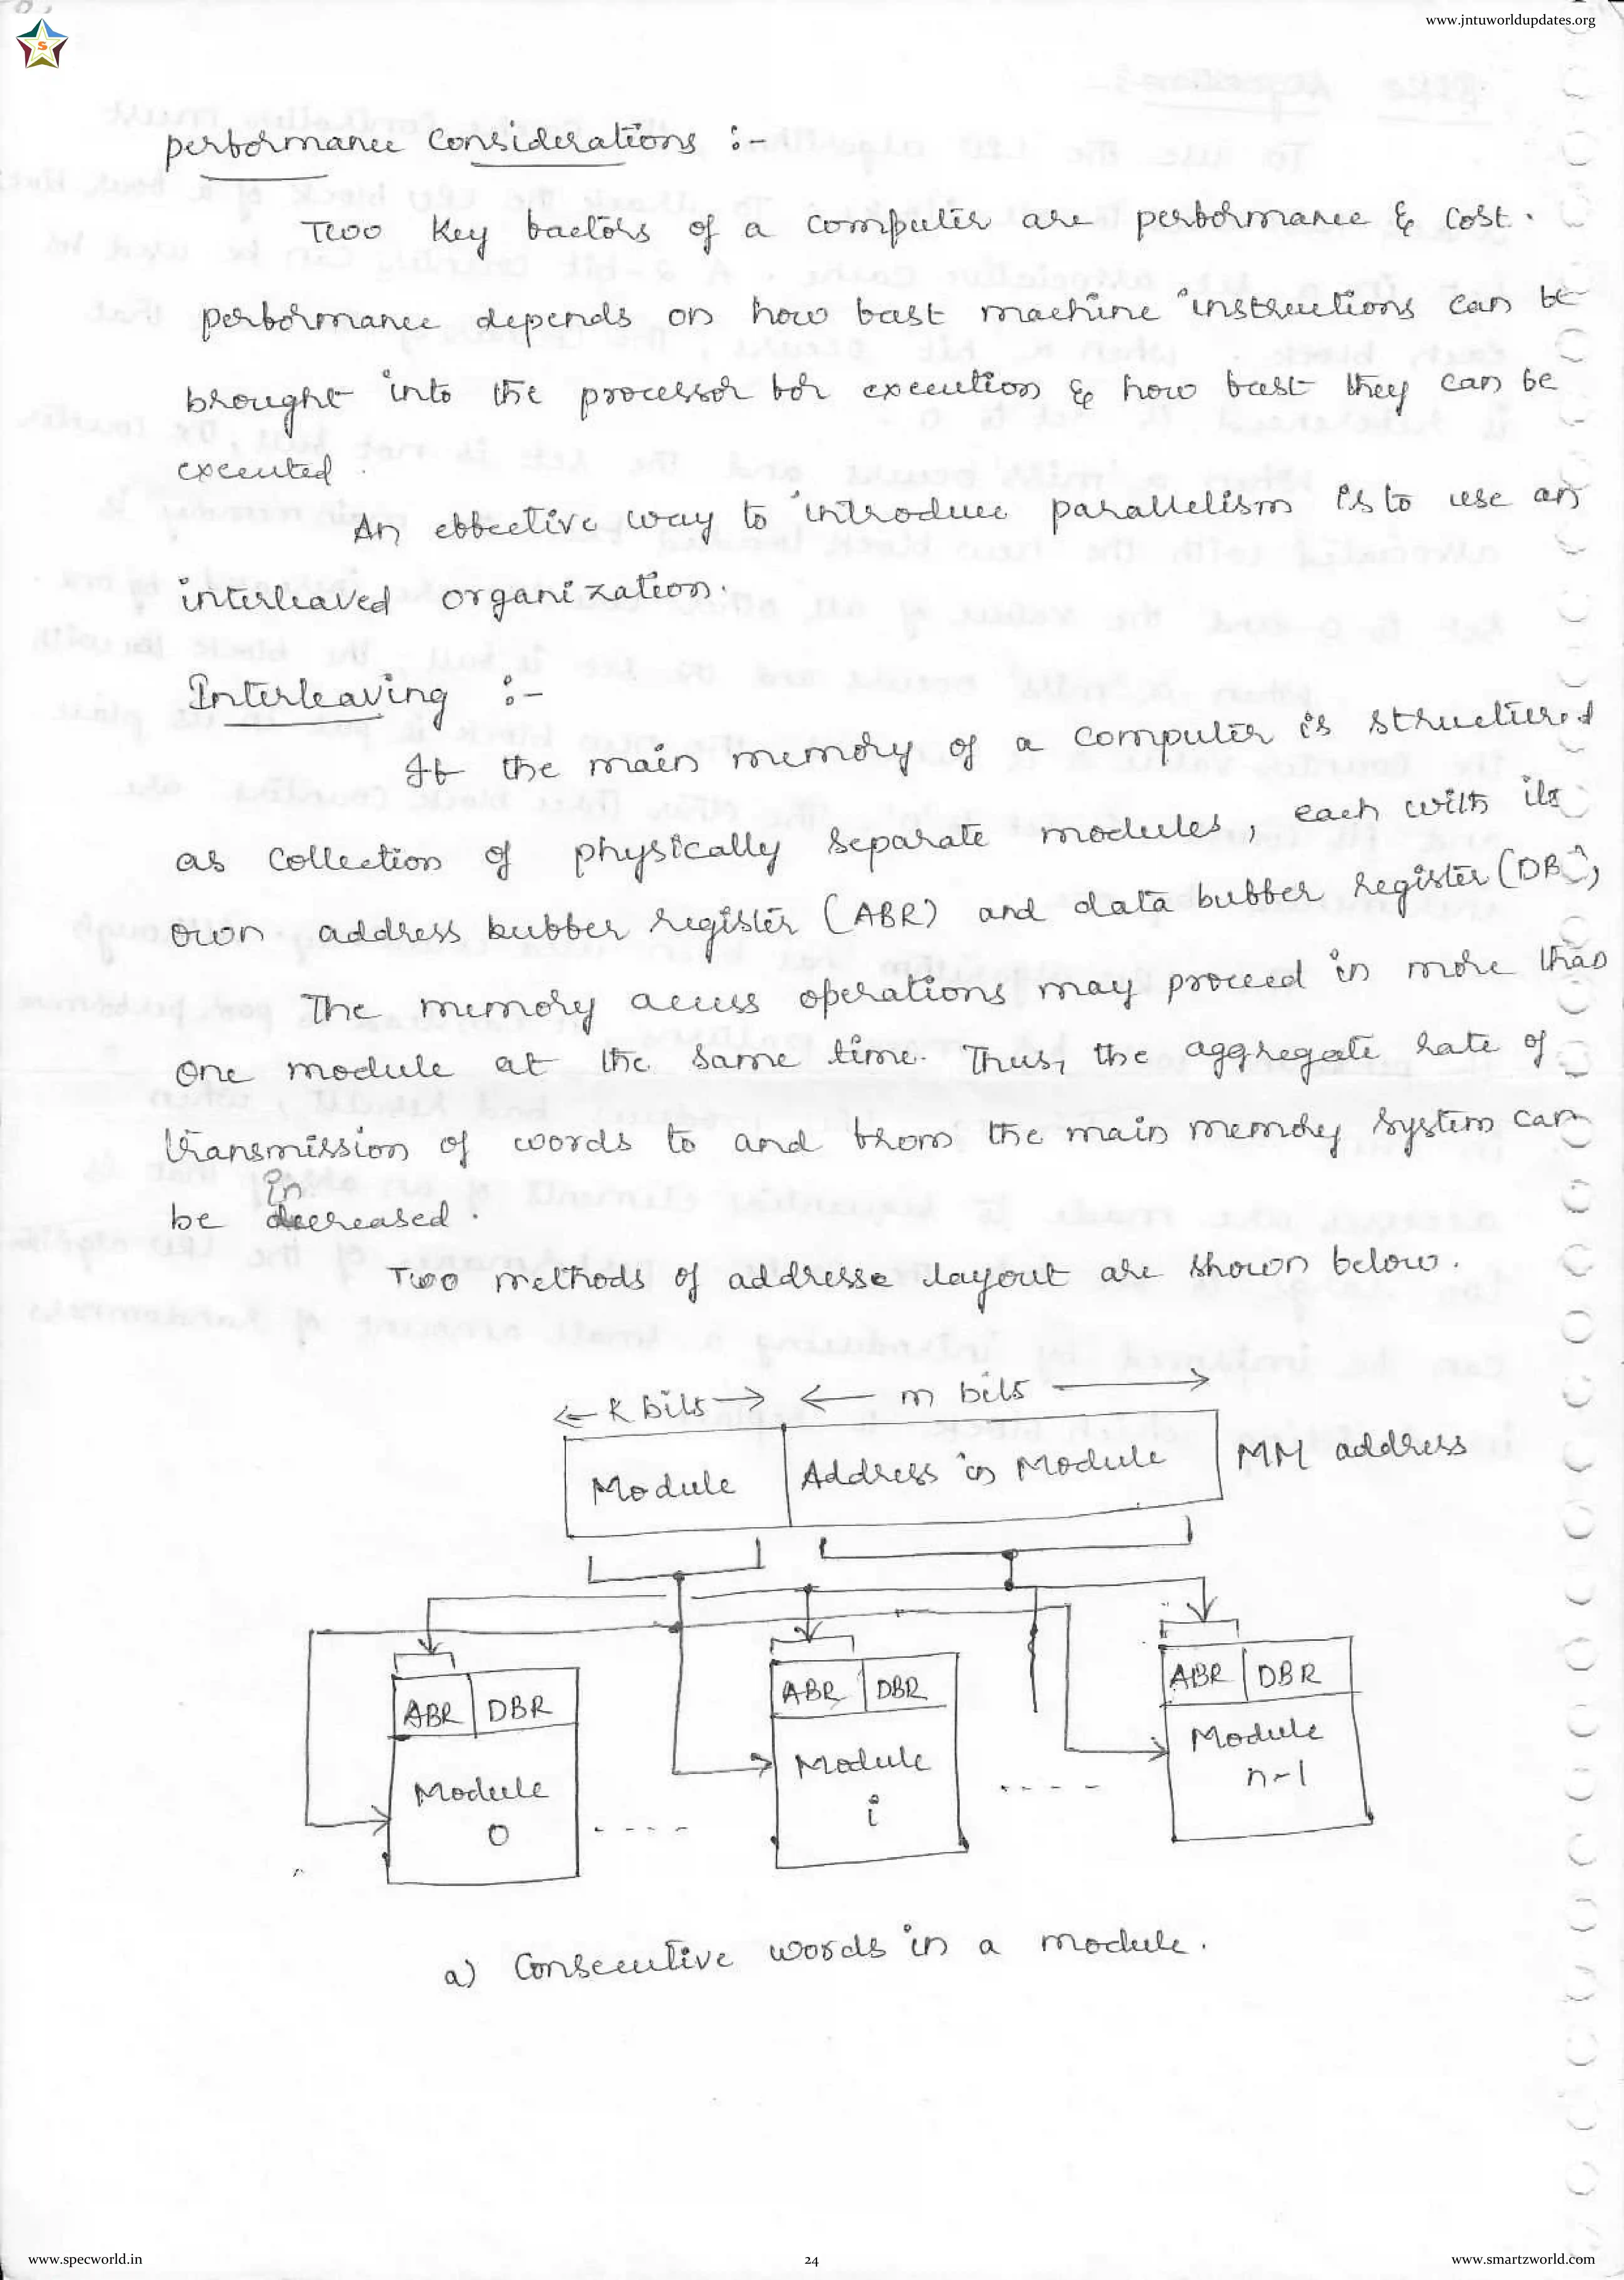 www.jntuworldupdates.org
S
performance Considerations :-
Two key factors of a computer are performance & cost.
performance depends on how fast machine instructions can be
brought into the processor for execution & how fast they can be
executed.
An effective way to introduce parallelism is to use an
interleaved organization.
Interleaving :-
If the main memory of a computer is structured
as collection of physically separate modules, each with its
own address buffer register (ABR) and data buffer register (DBR),
The memory access operations may proceed in more than
one module at the same time. Thus, the aggregate rate of
transmission of words to and from the main memory system can
in
be decreased.
Two methods of addresse layout are shown below.
k bits m bits
Module Address in Module MM address
ABR DBR ABR DBR ABR DBR
Module Module Module
0 - - - - i - - - - n-1
a) Consecutive words in a module.
www.specworld.in 24 www.smartzworld.com